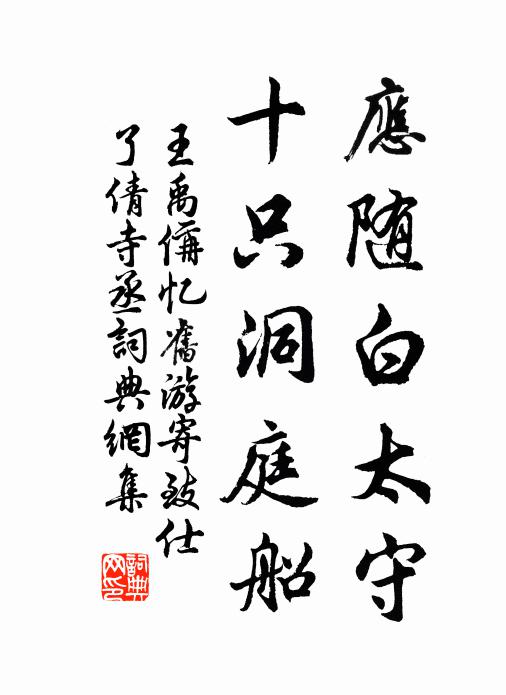 應随白太守
十只洞庭船
王禹偁忆舊游寄致仕
了倩寺丞詞典網集
詞典
网印